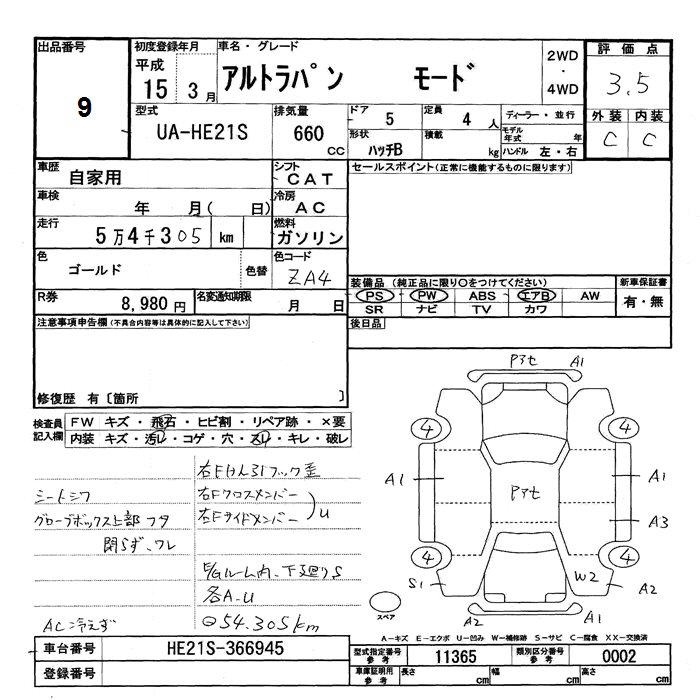 出品番号
9
初度登録年月
平成
15 3月
車名・グレード
アルトラパン モード
2WD
・
4WD
評価点
3.5
外装 内装
C C
型式
UA-HE21S
排気量
660 CC
ドア 5
形状 ハッチB
定員 4 人
積載 kg
ディーラー・並行
モデル年式 年
ハンドル 左・右
車歴
自家用
シフト
CAT
車検
年 月( 日)
冷房
AC
走行
5万4千305 km
燃料
ガソリン
色
ゴールド
色替
色コード
ZA4
R券
8,980円
名変通知期限
月 日
セールスポイント(正常に機能するものに限ります)
装備品(純正品に限り○をつけてください)
PS PW ABS エアB AW
SR ナビ TV カワ
新車保証書
有・無
後日品
注意事項申告欄(不具合内容等は具体的に記入して下さい)
修復歴 有〔箇所 〕
検査員
記入欄
FW キズ・飛石・ヒビ割・リペア跡・×要
内装 キズ・汚レ・コゲ・穴・スレ・キレ・破レ
右Fけん引フック歪
シートシワ
右Fクロスメンバー
グローブボックス上部フタ
右Fサイドメンバー
U
閉らず、ワレ
E/Gルーム内、下廻りS
各A-U
AC冷えず
54.305km
Pアセ A1
4 4
A1 Pアセ A1
A3
4 4
S1 W2 A2
スペア
A2 A1
A−キズ E−エクボ U−凹み W−補修跡 S−サビ C−腐食 XX−交換済
車台番号
HE21S-366945
登録番号
型式指定番号
参考
11365
類別区分番号
参考
0002
車庫証明用
参考
長さ cm
幅 cm
高さ cm